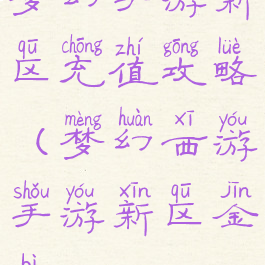 游新
qū chōng zhí gōng lüè
区充值攻略
mèng huàn xī yóu
（梦幻西游
shǒu yóu xīn qū jīn
手游新区金
bì